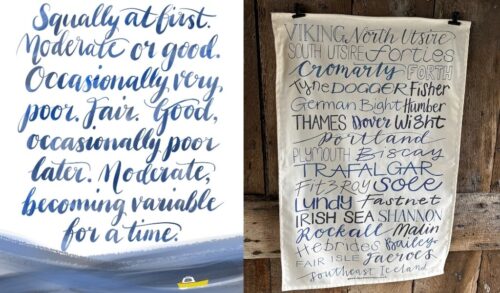 Squally at first.
Moderate or good.
Occasionally very,
poor. Fair. Good,
occasionally poor
later. Moderate,
becoming variable
for a time.
VIKING North Utsire
SOUTH UTSIRE Forties
Cromarty FORTH
Tyne DOGGER Fisher
German Bight Humber
THAMES Dover Wight
Portland
PLYMOUTH Biscay
TRAFALGAR
FitzRoy Sole
Lundy Fastnet
IRISH SEA SHANNON
Rockall Malin
Hebrides Bailey
FAIR ISLE Faeroes
Southeast Iceland